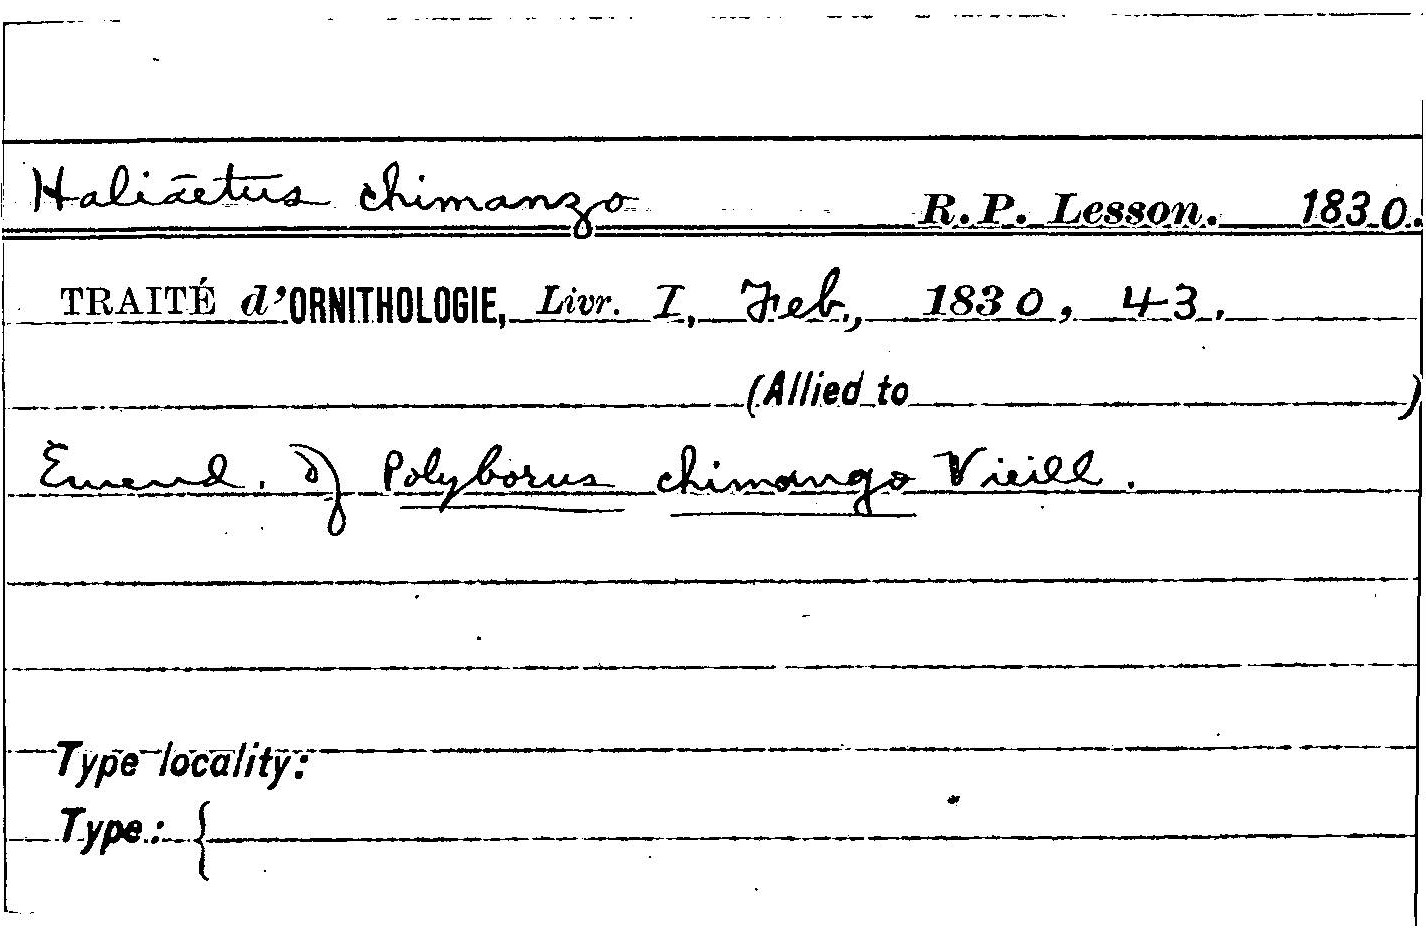 Haliāetus chimanzo R.P. Lesson. 1830.
TRAITÉ d'ORNITHOLOGIE, Livr. I, Feb., 1830, 43.
(Allied to )
Emend. of Polyborus chimango Vieill.
Type locality:
Type: {